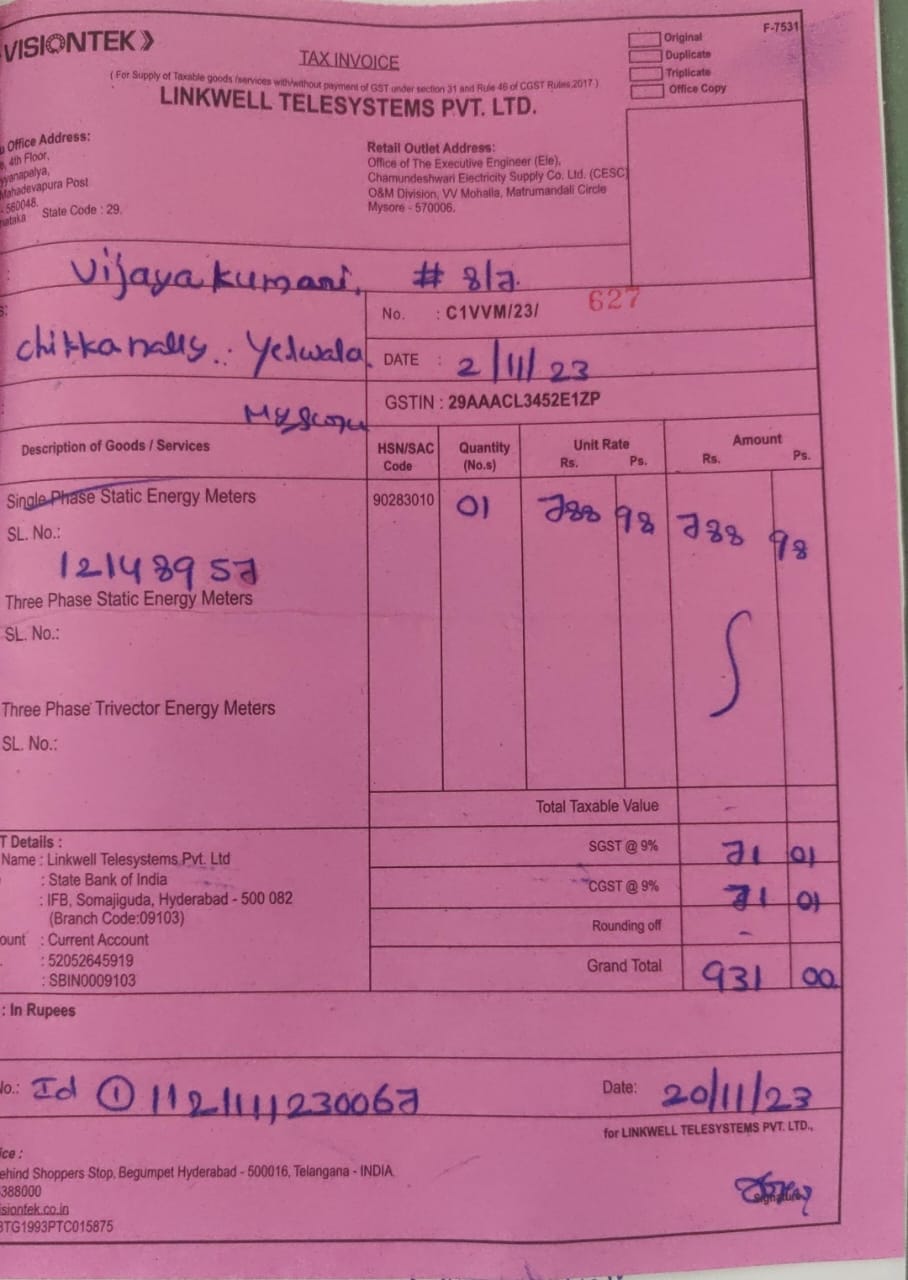 VISIONTEK
F-7531
TAX INVOICE
Original
Duplicate
Triplicate
Office Copy
( For Supply of Taxable goods /services with/without payment of GST under section 31 and Rule 46 of CGST Rules 2017 )
LINKWELL TELESYSTEMS PVT. LTD.
Office Address:
4th Floor,
Mahadevapura Post
560048.
State Code : 29,
Retail Outlet Address:
Office of The Executive Engineer (Ele),
Chamundeshwari Electricity Supply Co. Ltd. (CESC)
O&M Division, VV Mohalla, Matrumandali Circle
Mysore - 570006.
Vijayakumari, # 8/7.
No. : C1VVM/23/ 627
Yelwala.
DATE : 2/11/23
GSTIN : 29AAACL3452E1ZP
Description of Goods / Services
HSN/SAC Code
Quantity (No.s)
Unit Rate Rs. Ps.
Amount Rs. Ps.
Single Phase Static Energy Meters 90283010 01 788 98 788 98
SL. No.:
12148957
Three Phase Static Energy Meters
SL. No.:
Three Phase Trivector Energy Meters
SL. No.:
Total Taxable Value -
SGST @ 9% 71 01
CGST @ 9% 71 01
Rounding off -
Grand Total 931 00
Details :
Name : Linkwell Telesystems Pvt. Ltd
: State Bank of India
: IFB, Somajiguda, Hyderabad - 500 082
(Branch Code:09103)
: Current Account
: 52052645919
: SBIN0009103
: In Rupees
Id ① 112/111/230067
Date: 20/11/23
for LINKWELL TELESYSTEMS PVT. LTD.,
Shoppers Stop, Begumpet Hyderabad - 500016, Telangana - INDIA
388000
Signature